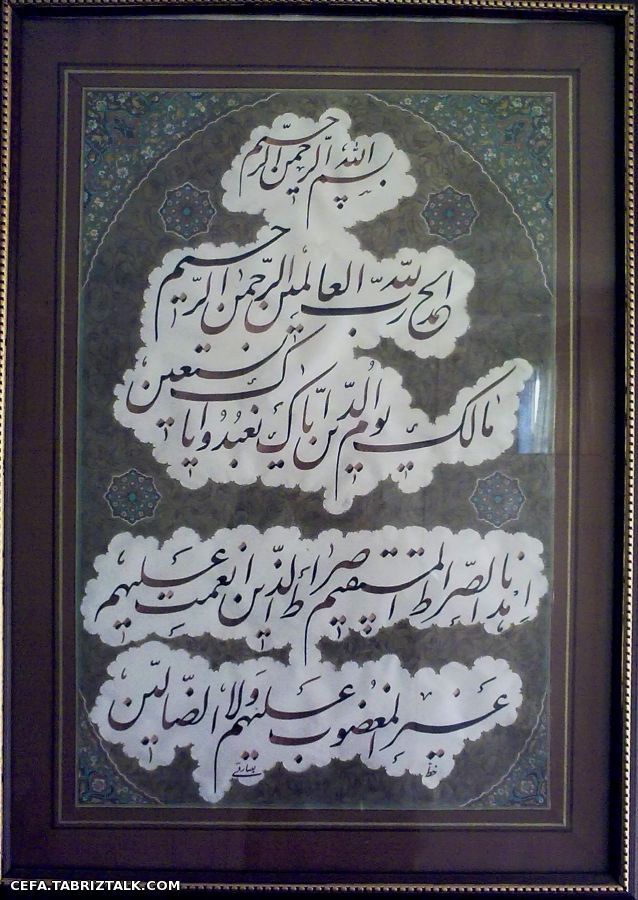 بسم الله الرحمن الرحیم
الحمد لله رب العالمین الرحمن الرحیم
مالک یوم الدین ایاک نعبد و ایاک نستعین
اهدنا الصراط المستقیم صراط الذین انعمت علیهم
غیر المغضوب علیهم ولا الضالین
خط
CEFA.TABRIZTALK.COM